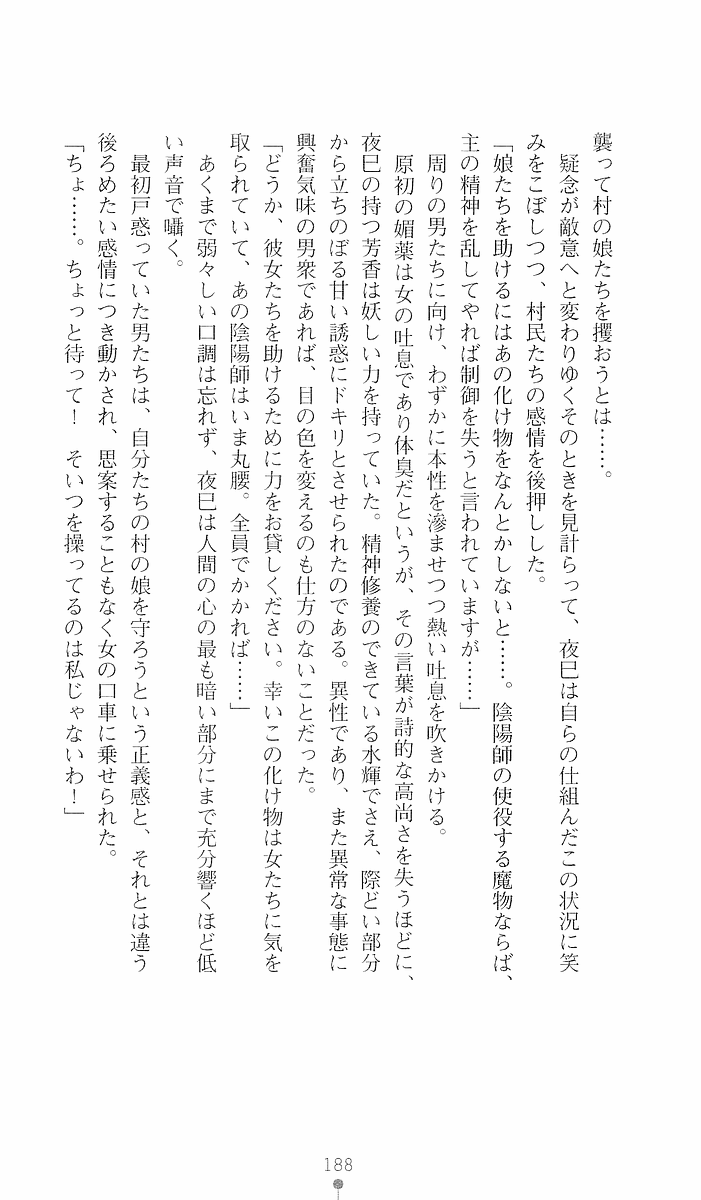 襲って村の娘たちを攫おうとは……。
　疑念が敵意へと変わりゆくそのときを見計らって、夜巳は自らの仕組んだこの状況に笑
みをこぼしつつ、村民たちの感情を後押しした。
「娘たちを助けるにはあの化け物をなんとかしないと……。陰陽師の使役する魔物ならば、
主の精神を乱してやれば制御を失うと言われていますが……」
　周りの男たちに向け、わずかに本性を滲ませつつ熱い吐息を吹きかける。
　原初の媚薬は女の吐息であり体臭だというが、その言葉が詩的な高尚さを失うほどに、
夜巳の持つ芳香は妖しい力を持っていた。精神修養のできている水輝でさえ、際どい部分
から立ちのぼる甘い誘惑にドキリとさせられたのである。異性であり、また異常な事態に
興奮気味の男衆であれば、目の色を変えるのも仕方のないことだった。
「どうか、彼女たちを助けるために力をお貸しください。幸いこの化け物は女たちに気を
取られていて、あの陰陽師はいま丸腰。全員でかかれば……」
　あくまで弱々しい口調は忘れず、夜巳は人間の心の最も暗い部分にまで充分響くほど低
い声音で囁く。
　最初戸惑っていた男たちは、自分たちの村の娘を守ろうという正義感と、それとは違う
後ろめたい感情につき動かされ、思案することもなく女の口車に乗せられた。
「ちょ……。ちょっと待って！　そいつを操ってるのは私じゃないわ！」
188